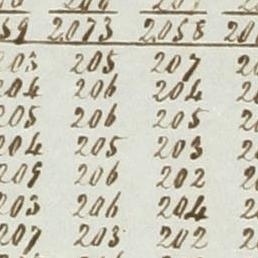 59 2073 2058 20
203 205 207 20
204 206 204 2
205 206 205 2
204 205 203 2
209 206 202 2
203 206 204 2
207 203 202 2